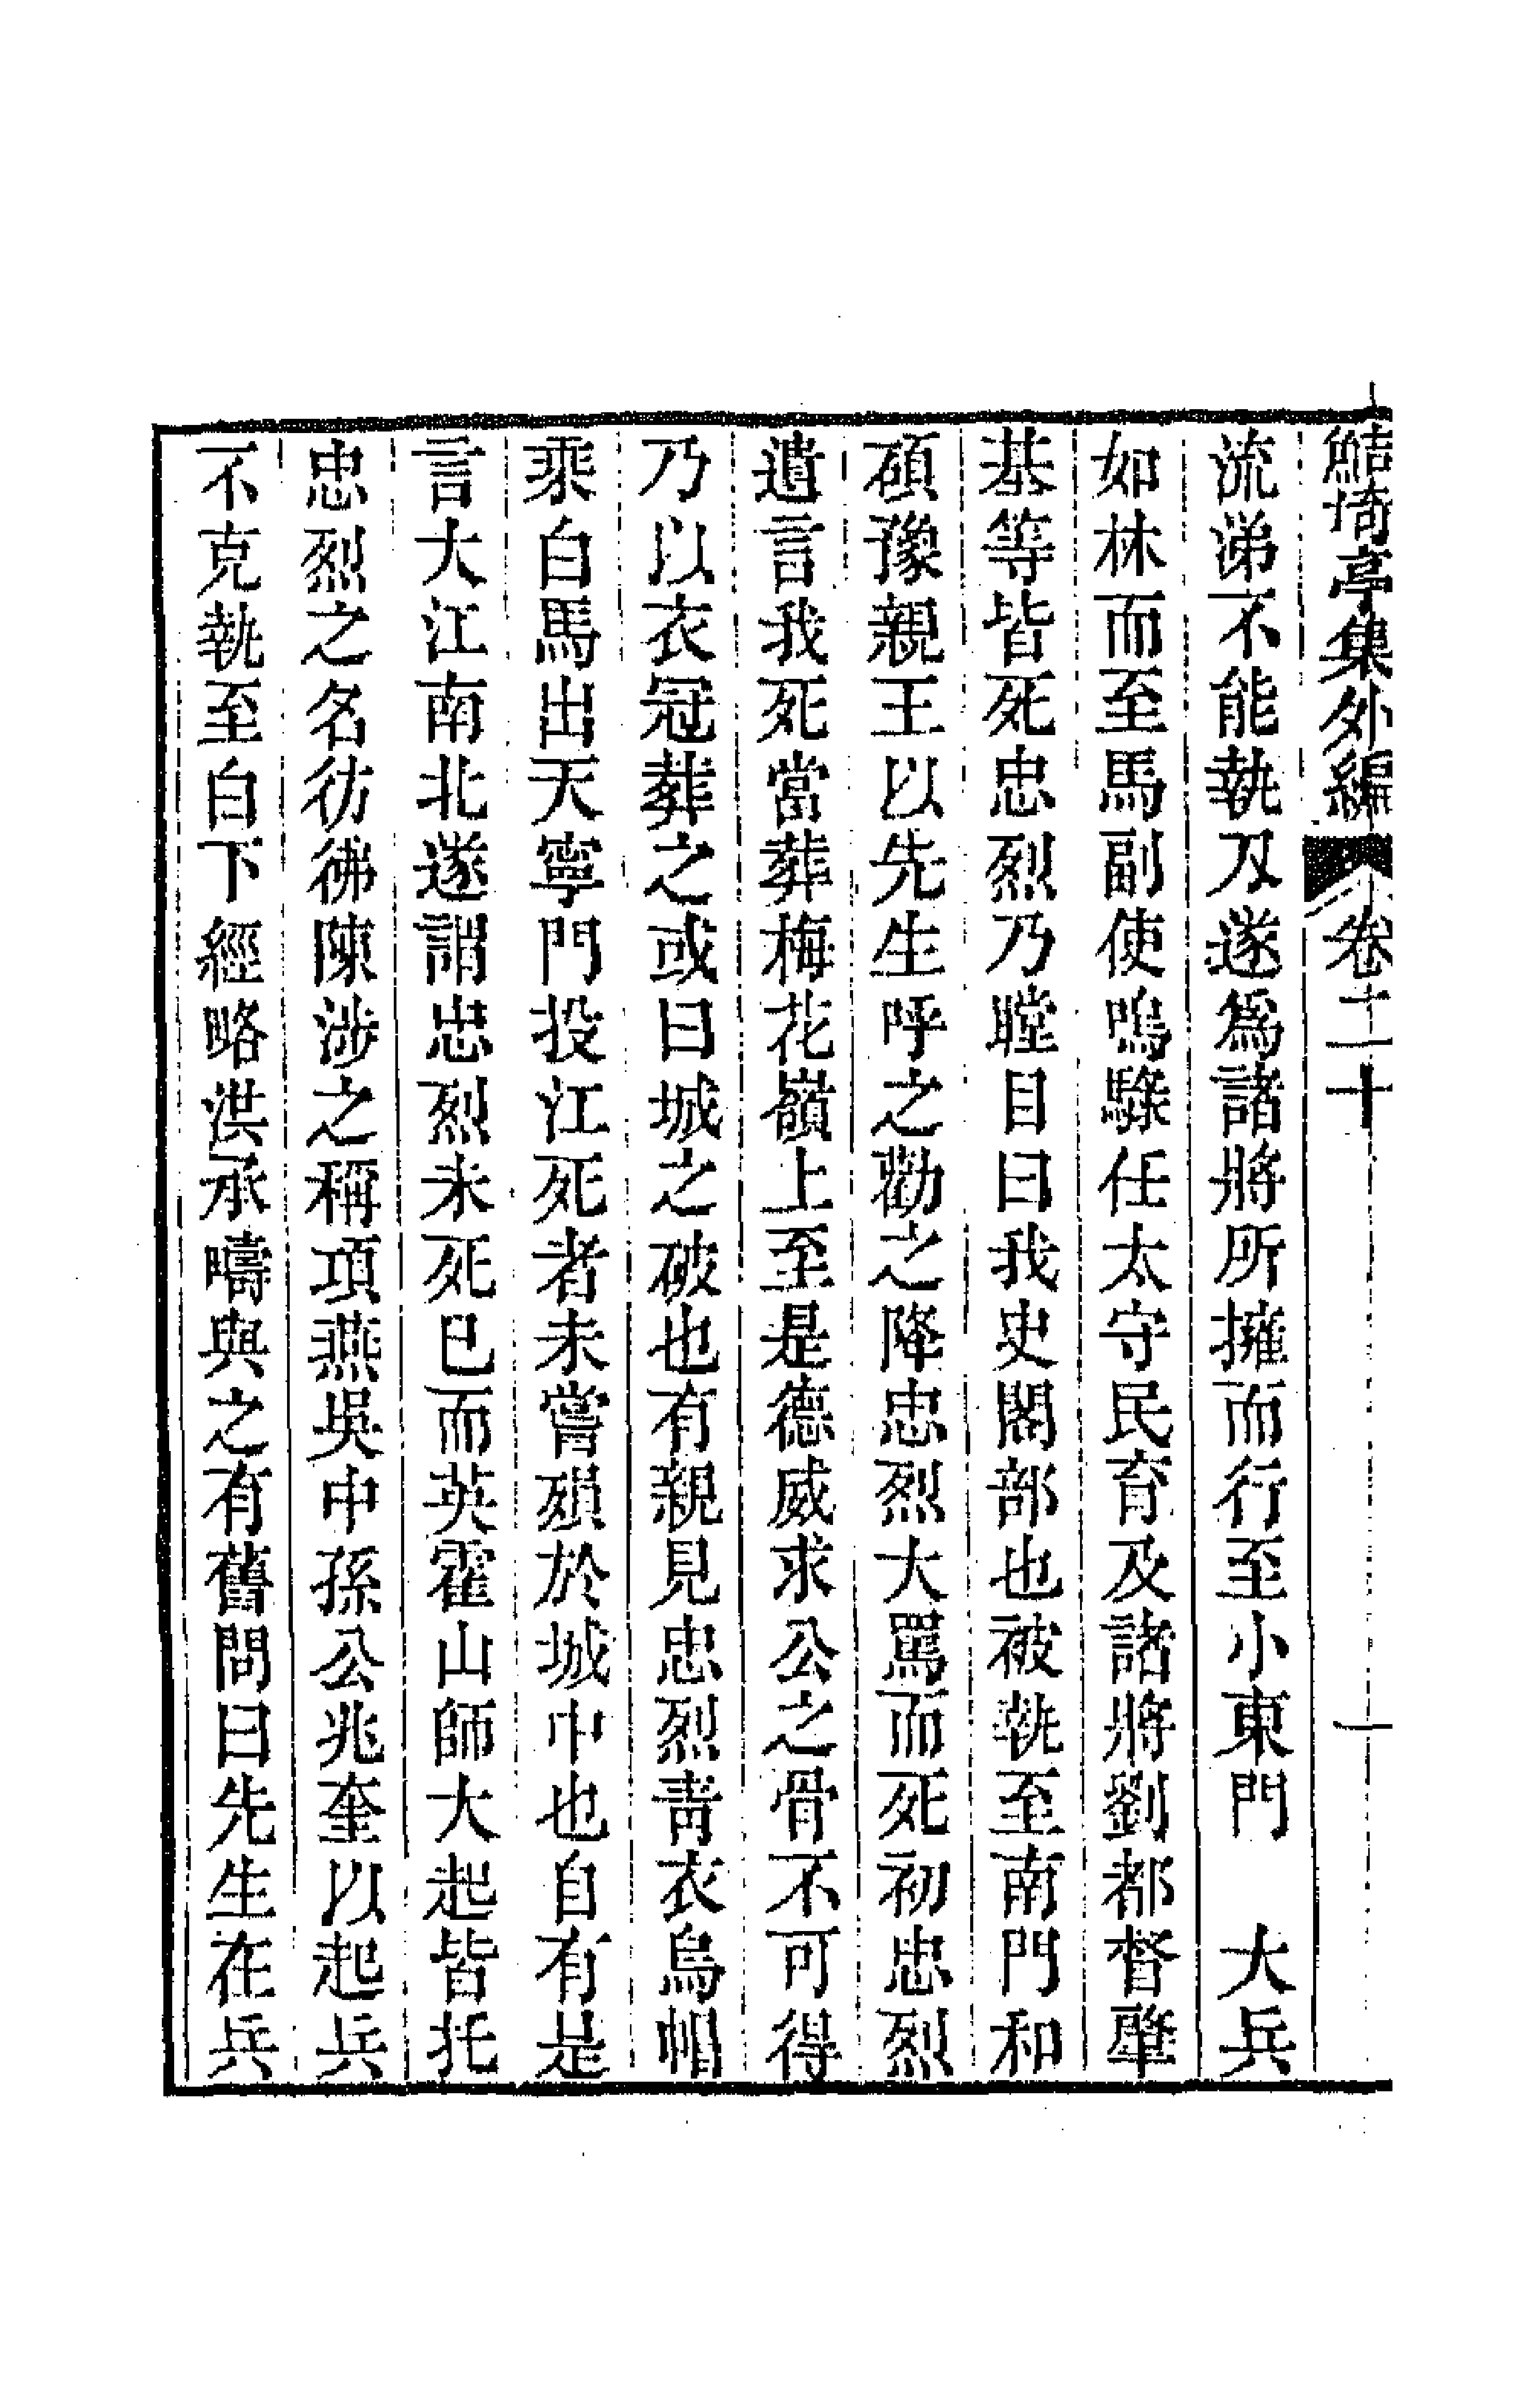 鮚埼亭集外編 卷二十 一
流涕不能執刀遂爲諸將所擁而行至小東門　大兵
如林而至馬副使鳴騄任太守民育及諸將劉都督肇
基等皆死忠烈乃瞠目曰我史閣部也被執至南門和
碩豫親王以先生呼之勸之降忠烈大罵而死初忠烈
遺言我死當葬梅花嶺上至是德威求公之骨不可得
乃以衣冠葬之或曰城之破也有親見忠烈青衣烏帽
乘白馬出天寧門投江死者未嘗殞於城中也自有是
言大江南北遂謂忠烈未死已而英霍山師大起皆托
忠烈之名彷彿陳涉之稱項燕吳中孫公兆奎以起兵
不克執至白下經略洪承疇與之有舊問曰先生在兵